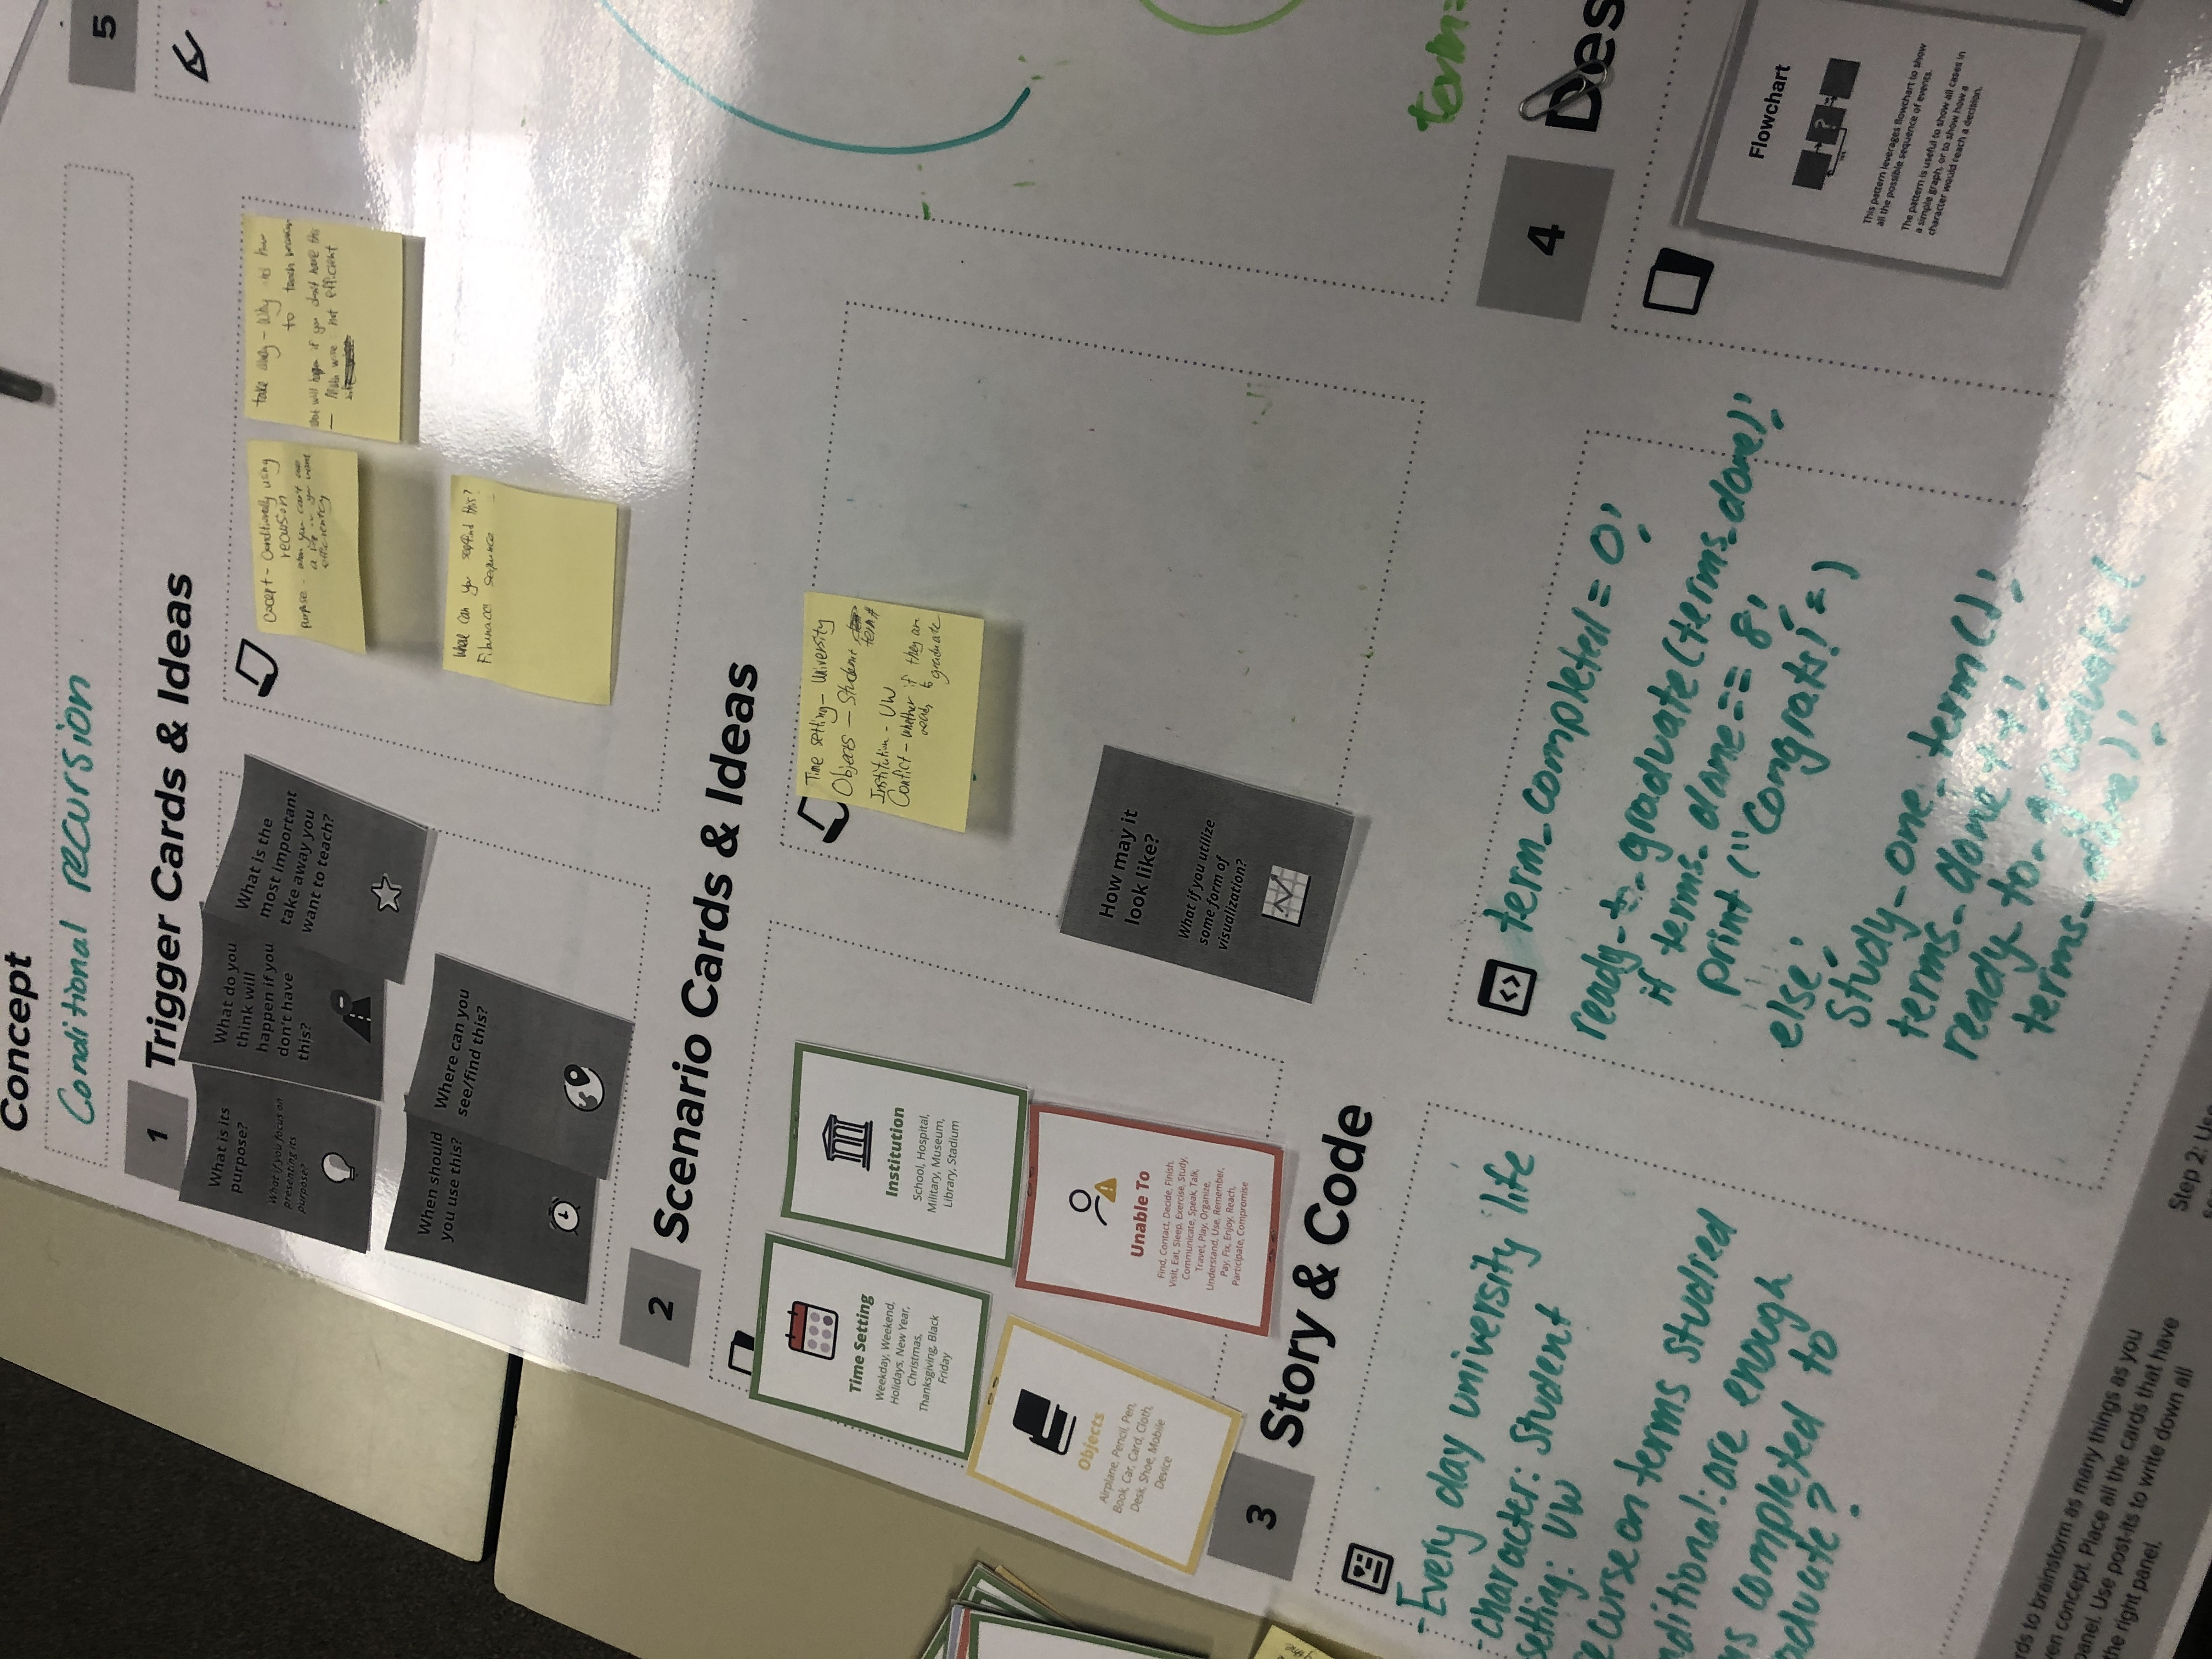 Concept
Conditional recursion
1
Trigger Cards & Ideas
What is its
purpose?
What if you focus on
presenting its
purpose?
What do you
think will
happen if you
don't have
this?
What is the
most important
take away you
want to teach?
When should
you use this?
Where can you
see/find this?
cocept - Conditionally using
recursion
purpose - when you can't use
a
efficientcy
take away - Why and how
to teach recursion
What will happen if you don't have this
- Math wise not efficient
Where can you see/find this?
Fibunacci sequence
5
2
Scenario Cards & Ideas
Time Setting
Weekday, Weekend,
Holidays, New Year,
Christmas,
Thanksgiving, Black
Friday
Institution
School, Hospital,
Military, Museum,
Library, Stadium
Objects
Airplane, Pencil, Pen,
Book, Car, Card, Cloth,
Desk, Shoe, Mobile
Device
Unable To
Find, Contact, Decide, Finish,
Visit, Eat, Sleep, Exercise, Study,
Communicate, Speak, Talk,
Travel, Play, Organize,
Understand, Use, Remember,
Pay, Fix, Enjoy, Reach,
Participate, Compromise
Time setting - University
Objects - Student
term #
Institution - UW
Confict - whether if they are
ready to
graduate
How may it
look like?
What if you utilize
some form of
visualization?
3
Story & Code
-Every day university life
-character: Student
setting: UW
recurse on terms studied
nditional: are enough
ms completed to
aduate?
term_completed = 0;
ready_to_graduate(terms_done);
if terms_done == 8;
print ("Congrats! =)
else;
Study_one_term();
terms_done++;
ready_to_graduate(
terms_done);
term=
4
Des
Flowchart
?
This pattern leverages flowchart to show
all the possible sequence of events.
The pattern is useful to show all cases in
a simple graph, or to show how a
character would reach a decision.
rds to brainstorm as many things as you
ven concept. Place all the cards that have
panel. Use post-its to write down all
the right panel.
Step 2: Use